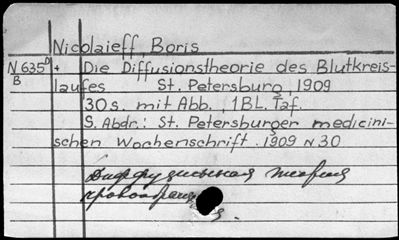 Nicolaieff, Boris
N 635 D + Die Diffusionstheorie des Blutkreis-
B laufes St. Petersburg, 1909
30 s. mit Abb., 1BL. Taf.
S. Abdr.: St. Petersburger medicini-
schen Wochenschrift. 1909 N 30
Диффузиональная теория